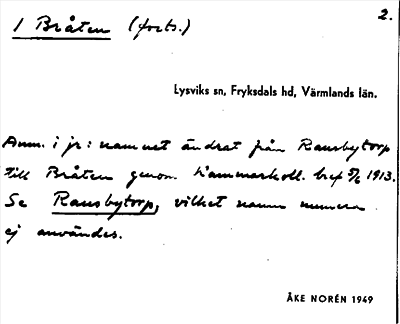 1 Bråten (forts.)
2.
Lysviks sn, Fryksdals hd, Värmlands län.
Anm. i jr: namnet ändrat från Ransbytorp
till Bråten genom Kammarkoll. bref 5/6 1913.
Se Ransbytorp, vilket namn numera
ej användes.
ÅKE NORÉN 1949